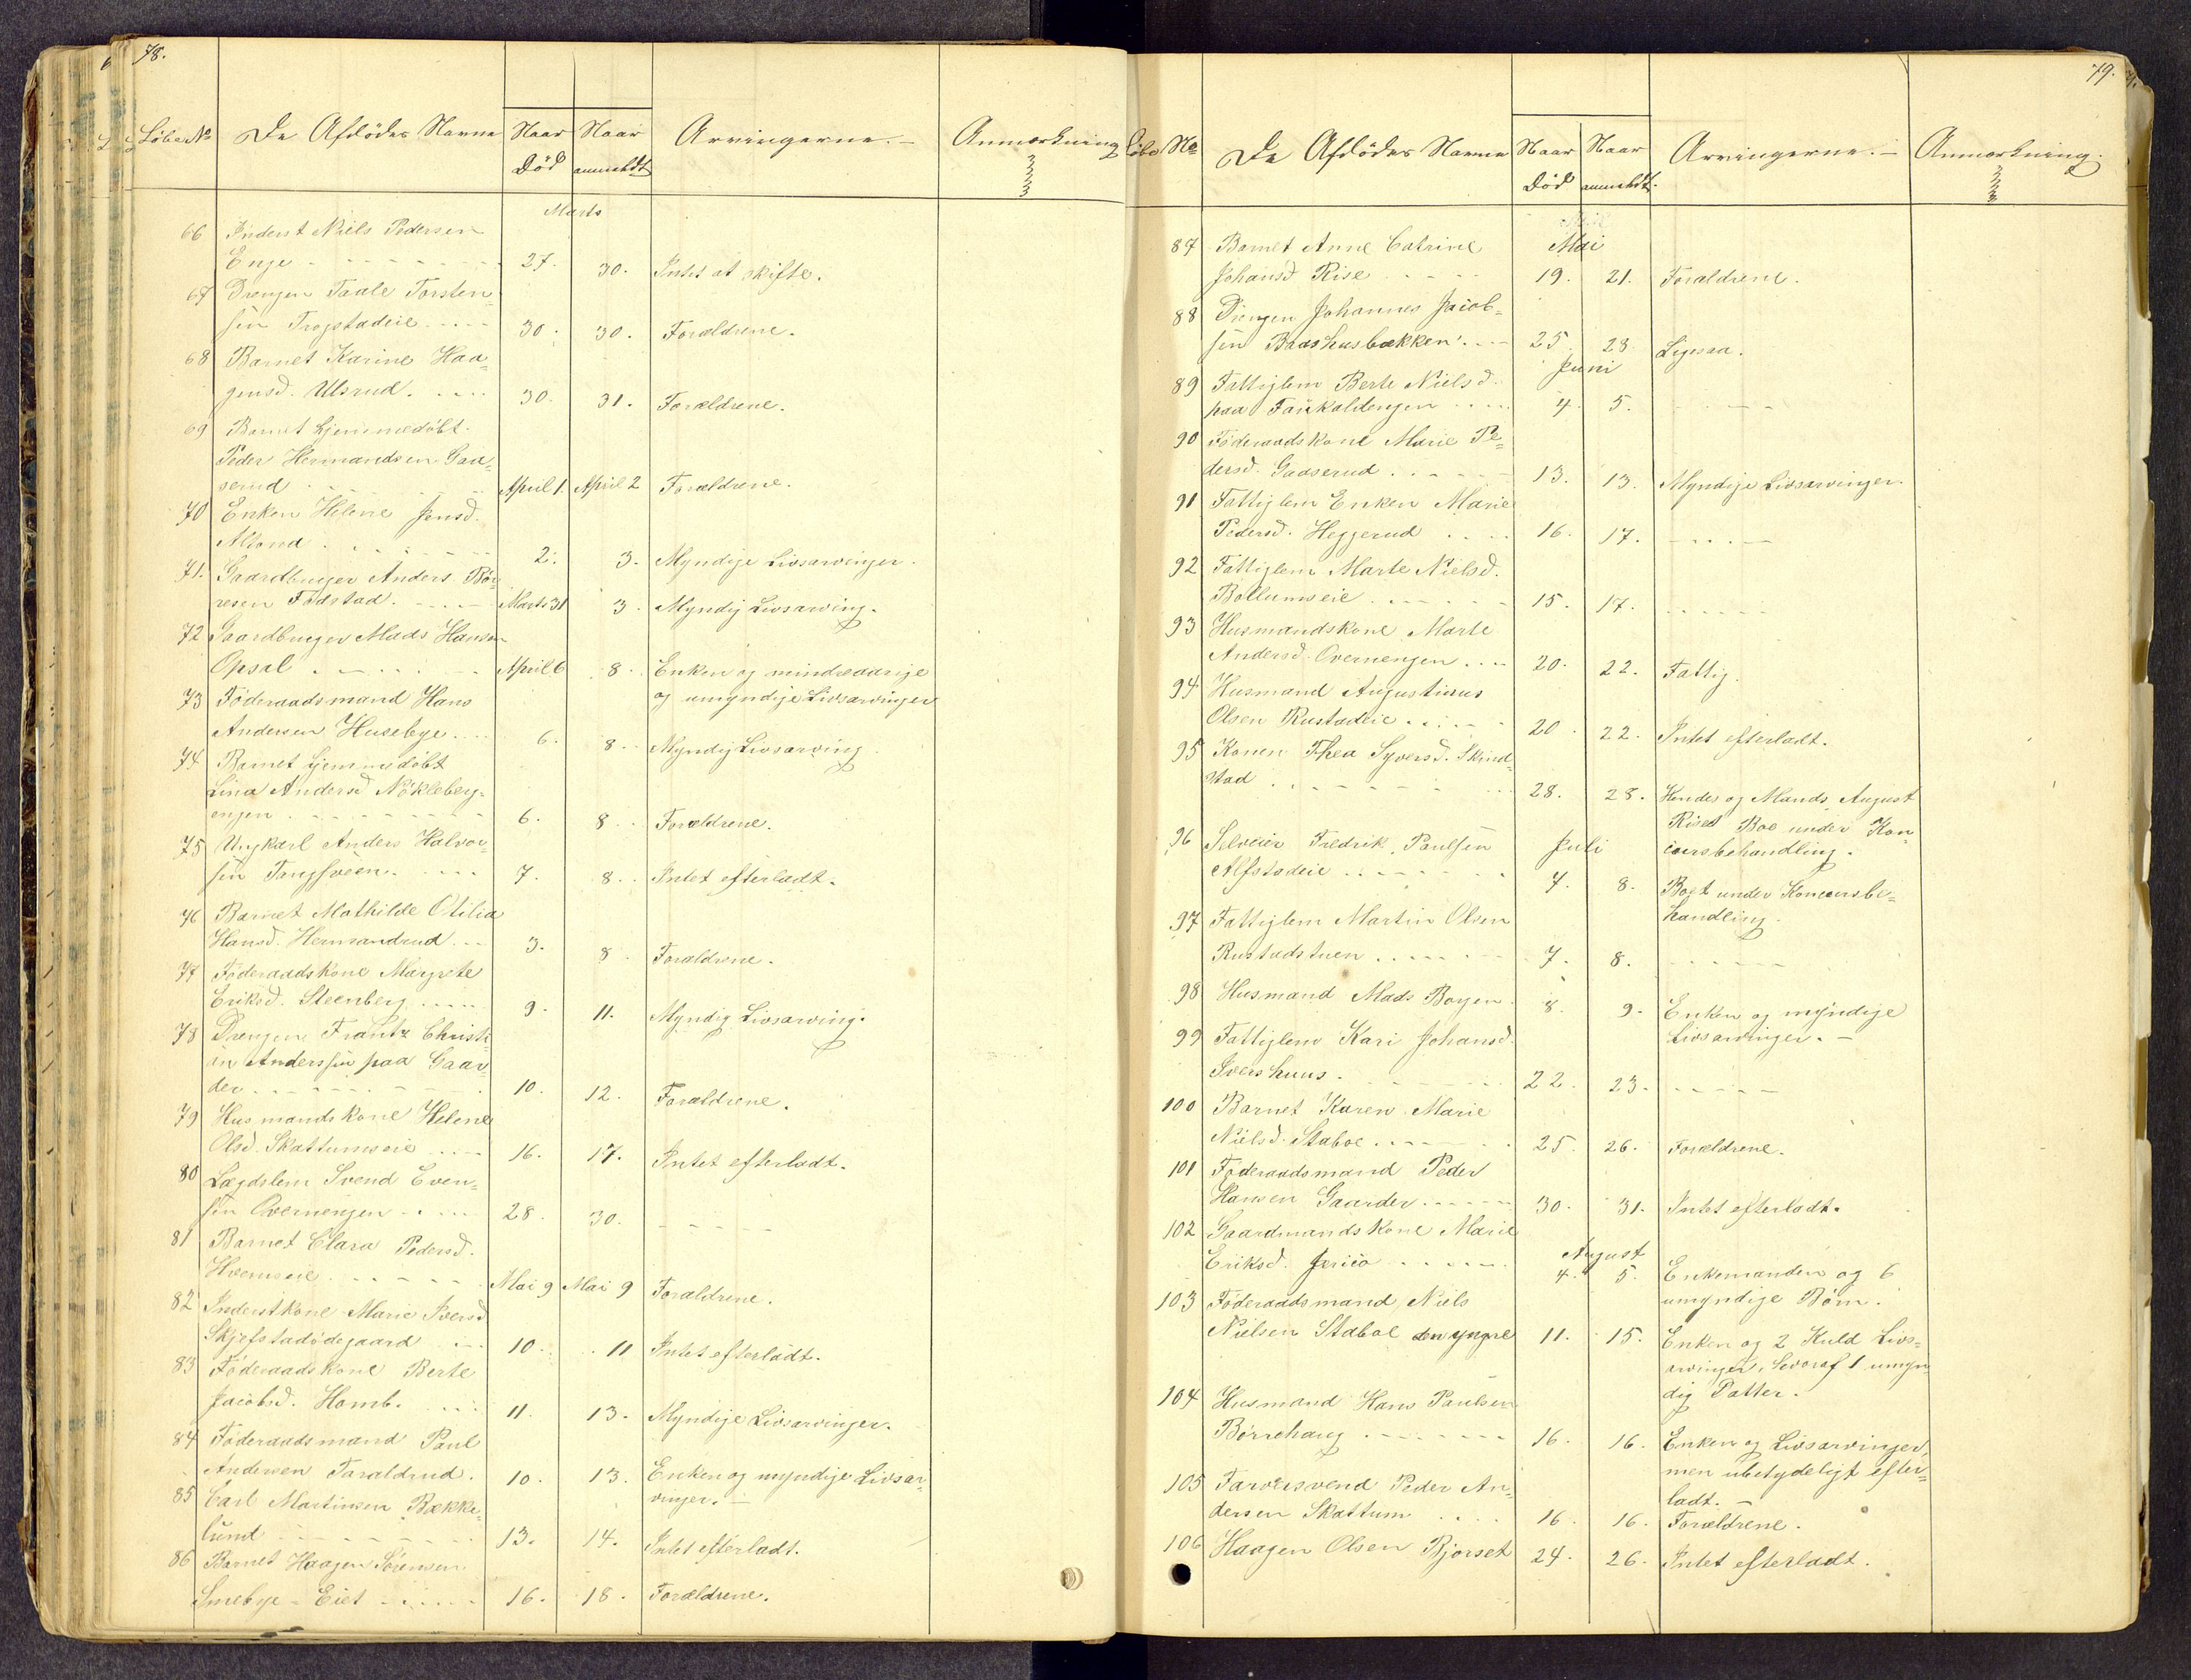 78.
Løbe No De Afdødes Navne Naar Død Naar anmeldt Arvingerne. Anmærkning
Marts
66 Inderst Niels Pedersen
Enge 27. 30. Intet at skifte.
67 Drengen Taale Torsten=
sen Trogstadeie 30. 30. Forældrene.
68 Barnet Karine Haa=
gensd. Ulsrud. 30. 31. Forældrene.
69 Barnet hjemmedøbt
Peder Hermandsen Gaa=
serud April 1. April 2 Forældrene.
70 Enken Helene Jensd.
2. 3. Myndige Livsarvinger.
71. Gaardbruger Anders Bør=
resen Fodstad. Marts 31 3. Myndig Livsarving.
72 Gaardbruger Mads Hansen
Opsal April 6 8. Enken og mindreaarige
og umyndige Livsarvinger
73 Föderaadsmand Hans
Andersen Husebye. 6. 8. Myndig Livsarving.
74 Barnet hjemmedøbt
Lina Andersd Nökleberg=
engen 6. 8. Forældrene.
75 Ungkarl Anders Halvor=
sen Tangsveen. 7. 8. Intet efterladt.
76 Barnet Mathilde Otilia
Hansd. Hermandrud 3. 8. Forældrene.
77 Föderaadskone Margrete
Eriksd. Steenberg 9. 11. Myndig Livsarving.
78 Drengen Frantz Christi=
an Anderssen paa Gaar=
der 10. 12. Forældrene.
79 Husmandskone Helene
Olsd. Skattumseie 16. 17. Intet efterladt.
80 Lægdslem Svend Even=
sen Overnengen 28. 30.
81 Barnet Clara Pedersd.
Hvemseie Mai 9 Mai 9 Forældrene.
82 Inderstkone Marie Iversd
Skjefstadödegaard 10. 11 Intet efterladt.
83 Föderaadskone Berte
Jacobsd. Homb. 11. 13. Myndige Livsarvinger.
84 Föderaadsmand Paul
Andersen Taraldrud. 10. 13. Enken og myndige Livsar=
vinger.
85 Carl Martinsen Bække=
lund 13. 14. Intet efterladt.
86 Barnet Haagen Sörensen
Smebye=Eiet 16. 18. Forældrene.
79.
Løbe No De Afdødes Navne Naar Død Naar anmeldt. Arvingerne. Anmærkning.
87 Barnet Anne Catrine Mai
Johansd Rise 19. 21. Forældrene.
88 Drengen Johannes Jacob=
sen Baashusbækken. 25. 28 Ligesaa.
Juni
89 Fattiglem Berte Nielsd.
paa Faukaldengen 4. 5.
90 Föderaadskone Marie Pe=
dersd. Gaaserud 13. 13. Myndige Livsarvinger.
91 Fattiglem Enken Marie
Pedersd. Heggerud 16. 17.
92 Fattiglem Marte Nielsd.
Bollumseie 15. 17.
93 Husmandskone Marte
Andersd. Overnengen 20. 22. Fattig.
94 Husmand Augustinus
Olsen Rustadeie 20. 22. Intet efterladt.
95 Konen Thea Syversd. Skind=
stad 28. 28. Hendes og Mands, August
Riset Boe under Kon=
cursbehandling.
96 Selveier Fredrik Paulsen Juli
Alfstadeie 4. 8. Boet under Koncursbe=
handling.
97 Fattiglem Martin Olsen
Rustadstuen 7. 8.
98 Husmand Mads Boyen 8. 9. Enken og myndige
Livsarvinger.
99 Fattiglem Kari Johansd.
Ivershuus. 22. 23.
100 Barnet Karen Marie
Nielsd. Staboe 25. 26. Forældrene.
101 Föderaadsmand Peder
Hansen Gaarder 30. 31. Intet efterladt.
102 Gaardmandskone Marie
August
Eriksd. Jerico 4. 5. Enkemanden og 6
umyndige Børn.
103 Föderaadsmand Niels
Nielsen Staboe den yngre 11. 15. Enken og 2 Kuld Livs=
arvinger, hvoraf 1 umyn=
dig Datter.
104 Husmand Hans Paulsen
Börrehaug 16. 16. Enken og Livsarvinger
men ubetydeligt efter=
ladt.
105 Farversvend Peder An=
dersen Skattum 16. 16. Forældrene.
106 Haagen Olsen Bjorset 24. 26. Intet efterladt.